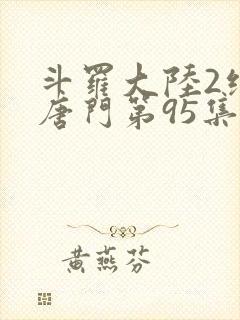 斗羅大陸2絕
唐門第95集
黃燕芬